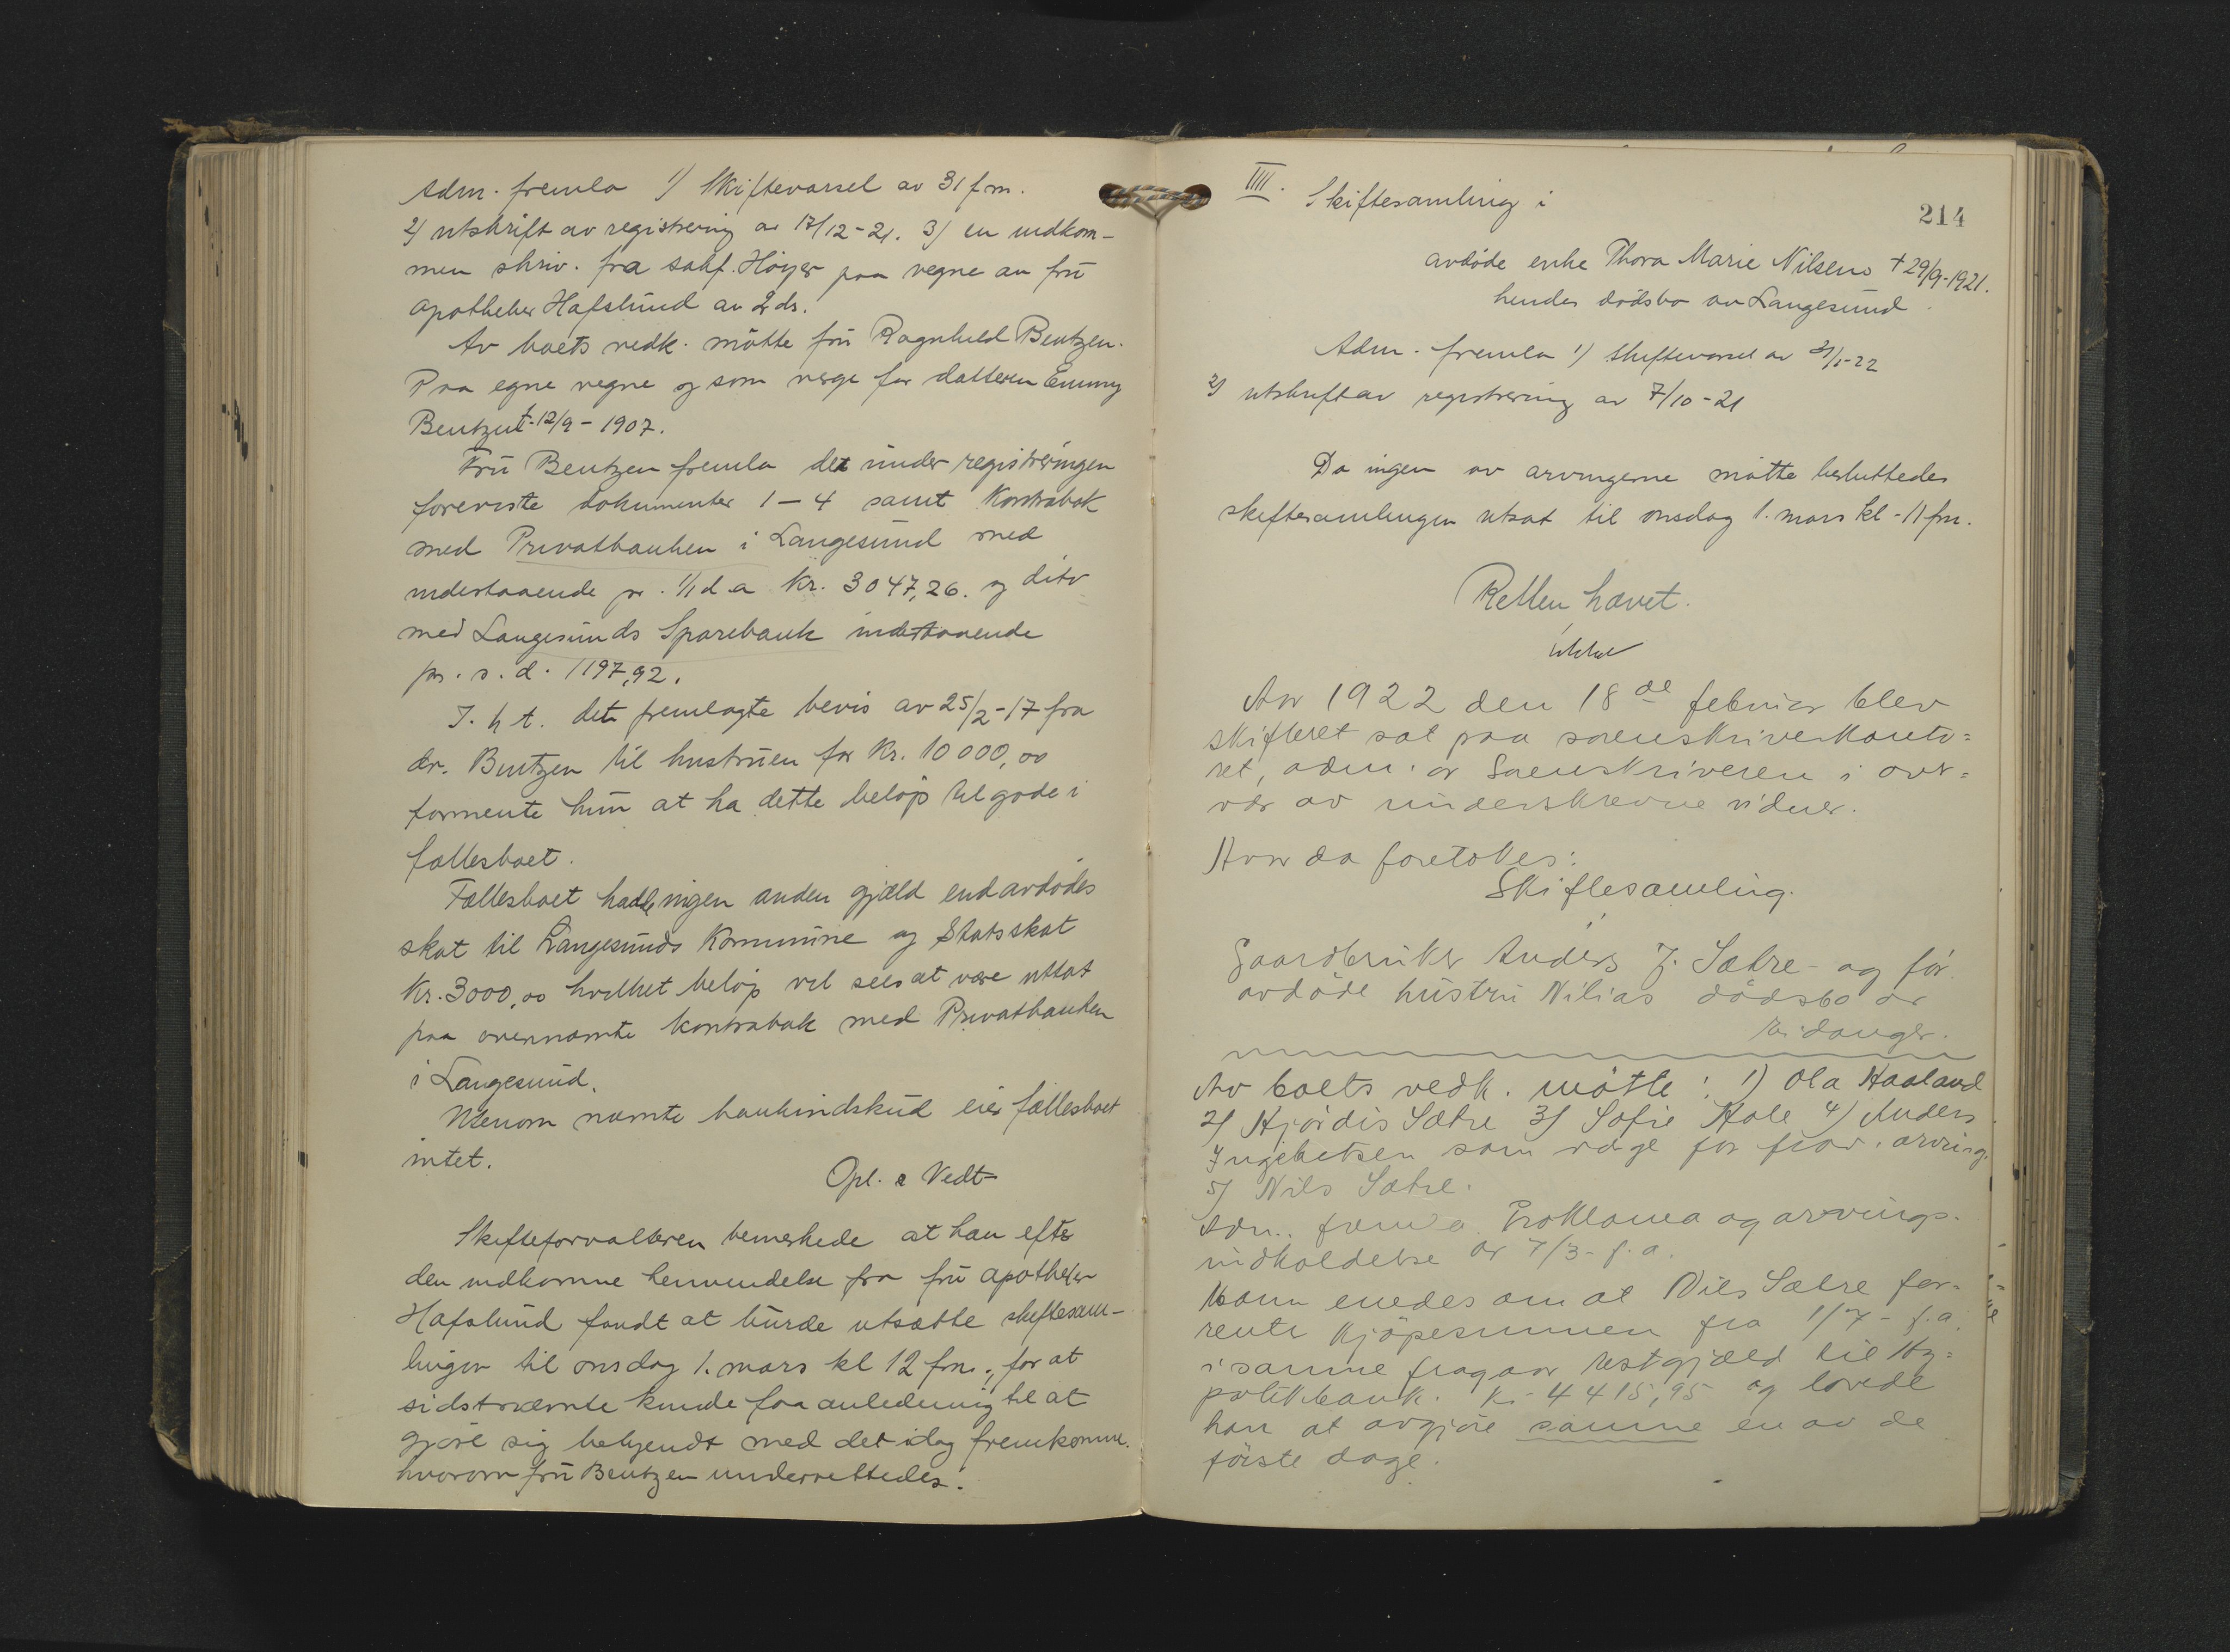 Adm. fremla 1) Skiftevarsel av 31 f.m.
2) utskrift av registrering av 17/12-21. 3) en indkom-
men skriv. fra sakf. Höyer paa vegne av frü
apotheker Hafslünd av 2 ds.
Av boets vedk. mötte frü Ragnhild Bentzen.
Paa egne vegne og som verge for datteren Emmy
Bentzen f. 12/9-1907.
Frü Bentzen fremla det ünder registreringen
foreviste dokumenter 1-4 samt Kontrabok
med Privatbanken i Langesünd med
indestaaende pr. 1/1 d.a kr. 3047,26. og dito
med Langesünds Sparebank indestaaende
pr. s. d. 1197,92.
I. h t. det fremlagte bevis av 25/2-17 fra
dr. Bentzen til hustrüen for kr. 10000,00
formente hün at ha dette belöp tilgode i
fællesboet.
Fællesboet hadde ingen anden gjæld end avdödes
skat til Langesünds Kommüne og Statsskat
kr. 3000,00 hvilket belöp vil sees at være uttat
paa ovennævnte kontrabok med Privatbanken
i Langesünd.
Utenom nævnte bankindskud eier fællesboet
intet.
Opl. & Vedt
Skifteforvalteren bemerkede at han efter
den indkomne henvendelse fra frü apotheker
Hafslünd fandt at bürde utsætte skiftesam-
lingen til onsdag 1. mars kl 12 fm., for at
sidstnævnte künde faa anledning til at
gjöre sig bekjendt med det idag fremkomne.
hvorom frü Bentzen underrettedes.
IIII. Skiftesamling i
214
avdöde enke Thora Marie Nilsens † 29/9-1921.
hendes dödsbo av Langesünd.
Adm. fremla 1) skiftevarsel av 31/1-22
2) utskrift av registrering av 7/10-21
Da ingen av arvingerne mötte besluttedes
skiftesamlingen utsat til onsdag 1. mars kl. 11 fm.
Retten hævet.
Aar 1922 den 18de febrüar blev
skifteret sat paa sorenskriverkonto=
ret, adm. av Sorenskriveren i over=
vær av ünderskrevne vidner.
Hvor da foretokes:
Skiftesamling.
Gaardbrüker Anders J. Sætre og for
avdöde hüstrü Nilias dödsbo av
Eidanger.
Av boets vedk. mötte: 1) Ola Haaland
2) Hjördis Sætre 3) Sofie Hole 4) Anders
Ingebretsen som værge for frav. arving.
5) Nils Sætre.
Adm. fremla Proklama og arvings-
indkaldelse av 7/3- f.a.
Mann enedes om at Nils Sætre for-
renter kjöpesummen fra 1/7- f.a.
i samme fragaar restgjæld til Hy=
potekbank. Kr 4415,95 og lovede
han at avgjöre samme en av de
förste dage.